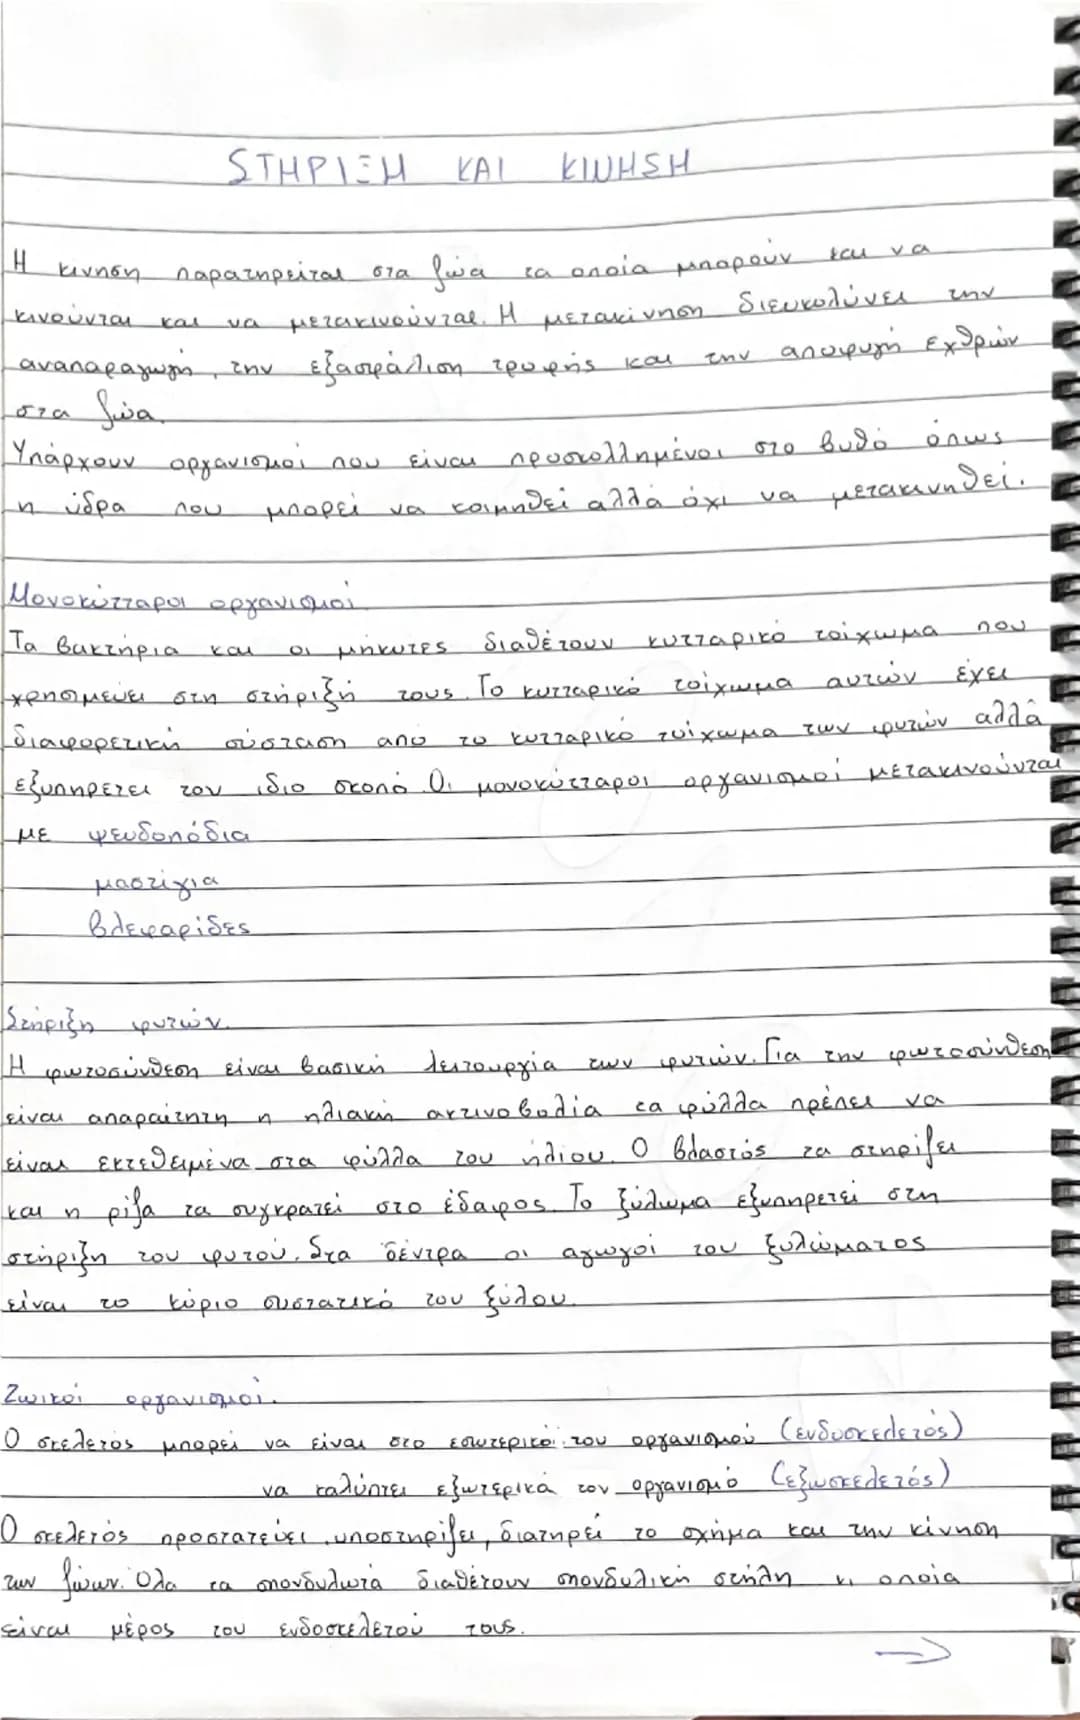 ΣΤΗΡΙΞΗ ΚΑΙ ΚΙΝΗΣΗ
Η κινηση παρατηρείται στα ζώα τα οποία μπορούν και να
κινούνται και να μετακινούνται. Η μετακίνηση διευκολύνει την
αναπαραγωγή, την εξασφάλιση τροφής και την αποφυγή εχθρών
στα ζώα.
Υπάρχουν οργανισμοί που είναι προσκολλημένοι στο βυθό όπως
η ύδρα που μπορεί να κοιμηθεί αλλά όχι να μετακινηθεί.
Μονοκύτταροι οργανισμοί
Τα βακτήρια και οι μήκυτες διαθέτουν κυτταρικό τοίχωμα που
χρησιμεύει στη στήριξή τους. Το κυτταρικό τοίχωμα αυτών έχει
διαφορετική σύσταση από το κυτταρικό τοίχωμα των φυτών αλλά
εξυπηρετεί τον ίδιο σκοπό. Οι μονοκύτταροι οργανισμοί μετακινούνται
με ψευδοπόδια
μαστίγια
βλεφαρίδες
Στήριξη φυτών.
Η φωτοσύνθεση είναι βασική λειτουργία των φυτών. Για την φωτοσύνθεση
είναι απαραίτητη η ηλιακή ακτινοβολία τα φύλλα πρέπει να
είναι εκτεθειμένα στα φύλλα του ήλιου. Ο βλαστός τα στηρίζει
και η ρίζα τα συγκρατεί στο έδαφος. Το ξύλωμα εξυπηρετεί στη
στήριξη του φυτού. Στα δέντρα οι αγωγοί του ξυλώματος
είναι το κύριο συστατικό του ξύλου.
Ζωικοί οργανισμοί.
Ο σκελετός μπορεί να είναι στο εσωτερικό του οργανισμού (ενδοσκελετός)
να καλύπτει εξωτερικά τον οργανισμό (εξωσκελετός)
Ο σκελετός προστατεύει, υποστηρίζει, διατηρεί το σχήμα και την κίνηση
των ζώων. Όλα τα σπονδυλωτά διαθέτουν σπονδυλική στήλη η οποία
είναι μέρος του ενδοσκελετού τους.